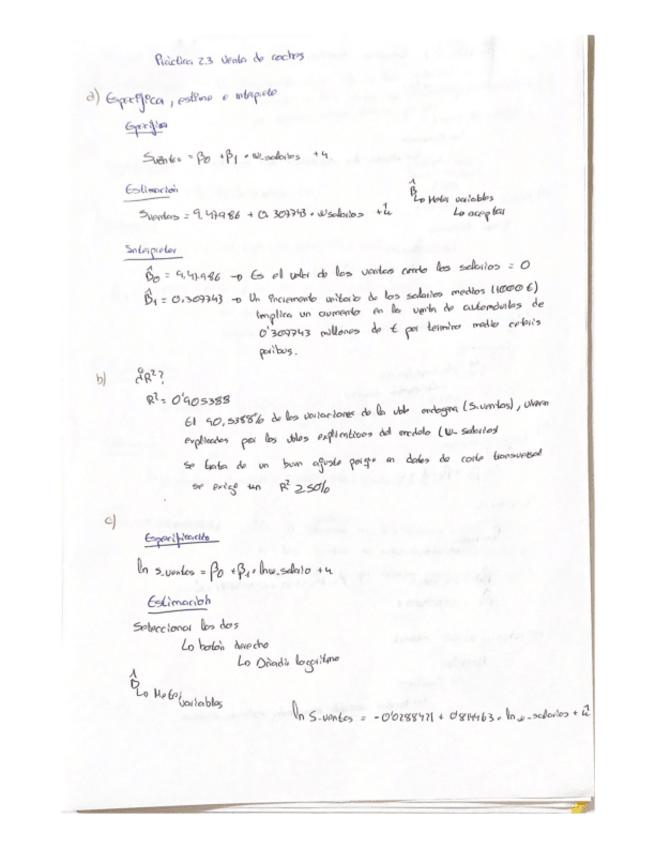 Práctica 2.3 Venta de coches
a) Especifica, estima e interpreta
Especifica
S.ventas = β0 + β1 · w.salarios + u
Estimación
S.ventas = 9,47986 + 0.307743 · w.salarios + û
β̂
↳ Meter variables
↳ aceptar
Interpretar
β̂0 = 9,47986 → Es el valor de las ventas cuando los salarios = 0
β̂1 = 0,307743 → Un incremento unitario de los salarios medios (1000 €)
implica un aumento en la venta de automóviles de
0'307743 millones de € por término medio ceteris
paribus.
b) ¿R²?
R² = 0'905388
El 90,5388% de las variaciones de la vble endógena (S.ventas), vienen
explicadas por las vbles explicativas del modelo (w.salarios)
se trata de un buen ajuste porque en datos de corte transversal
se exige un R² ≥ 50%
c)
Especificación
ln s.ventas = β0 + β1 · ln w.salario + u
Estimación
Seleccionar los dos
↳ botón derecho
↳ Añadir logaritmo
β̂
↳ Meter variables
ln S.ventas = -0'0288471 + 0'814463 · ln w.salarios + û